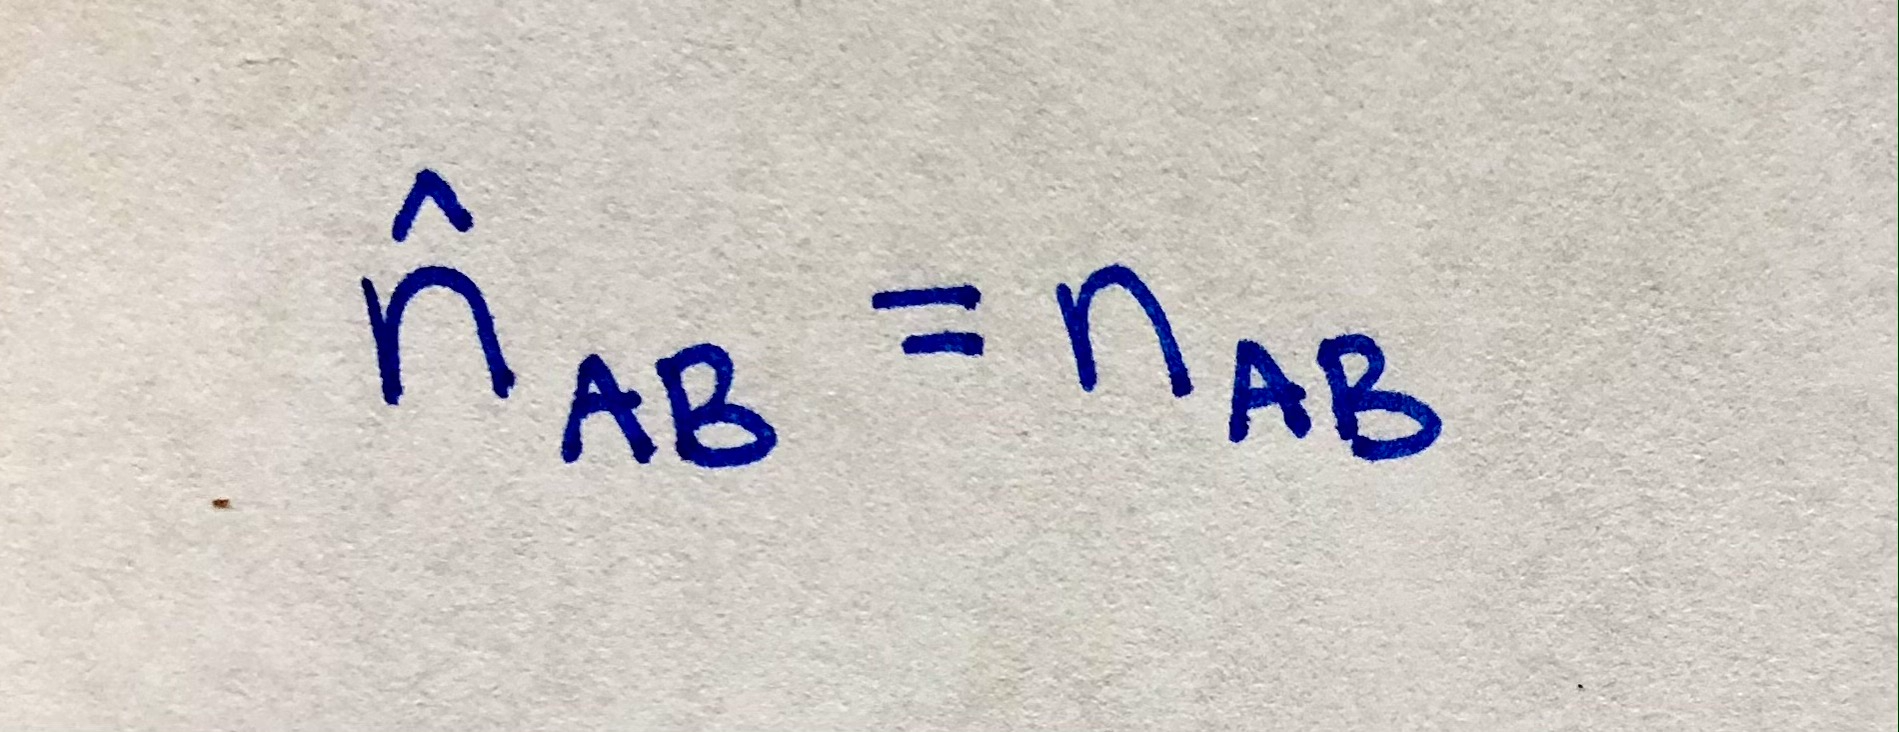 n̂_AB = n_AB